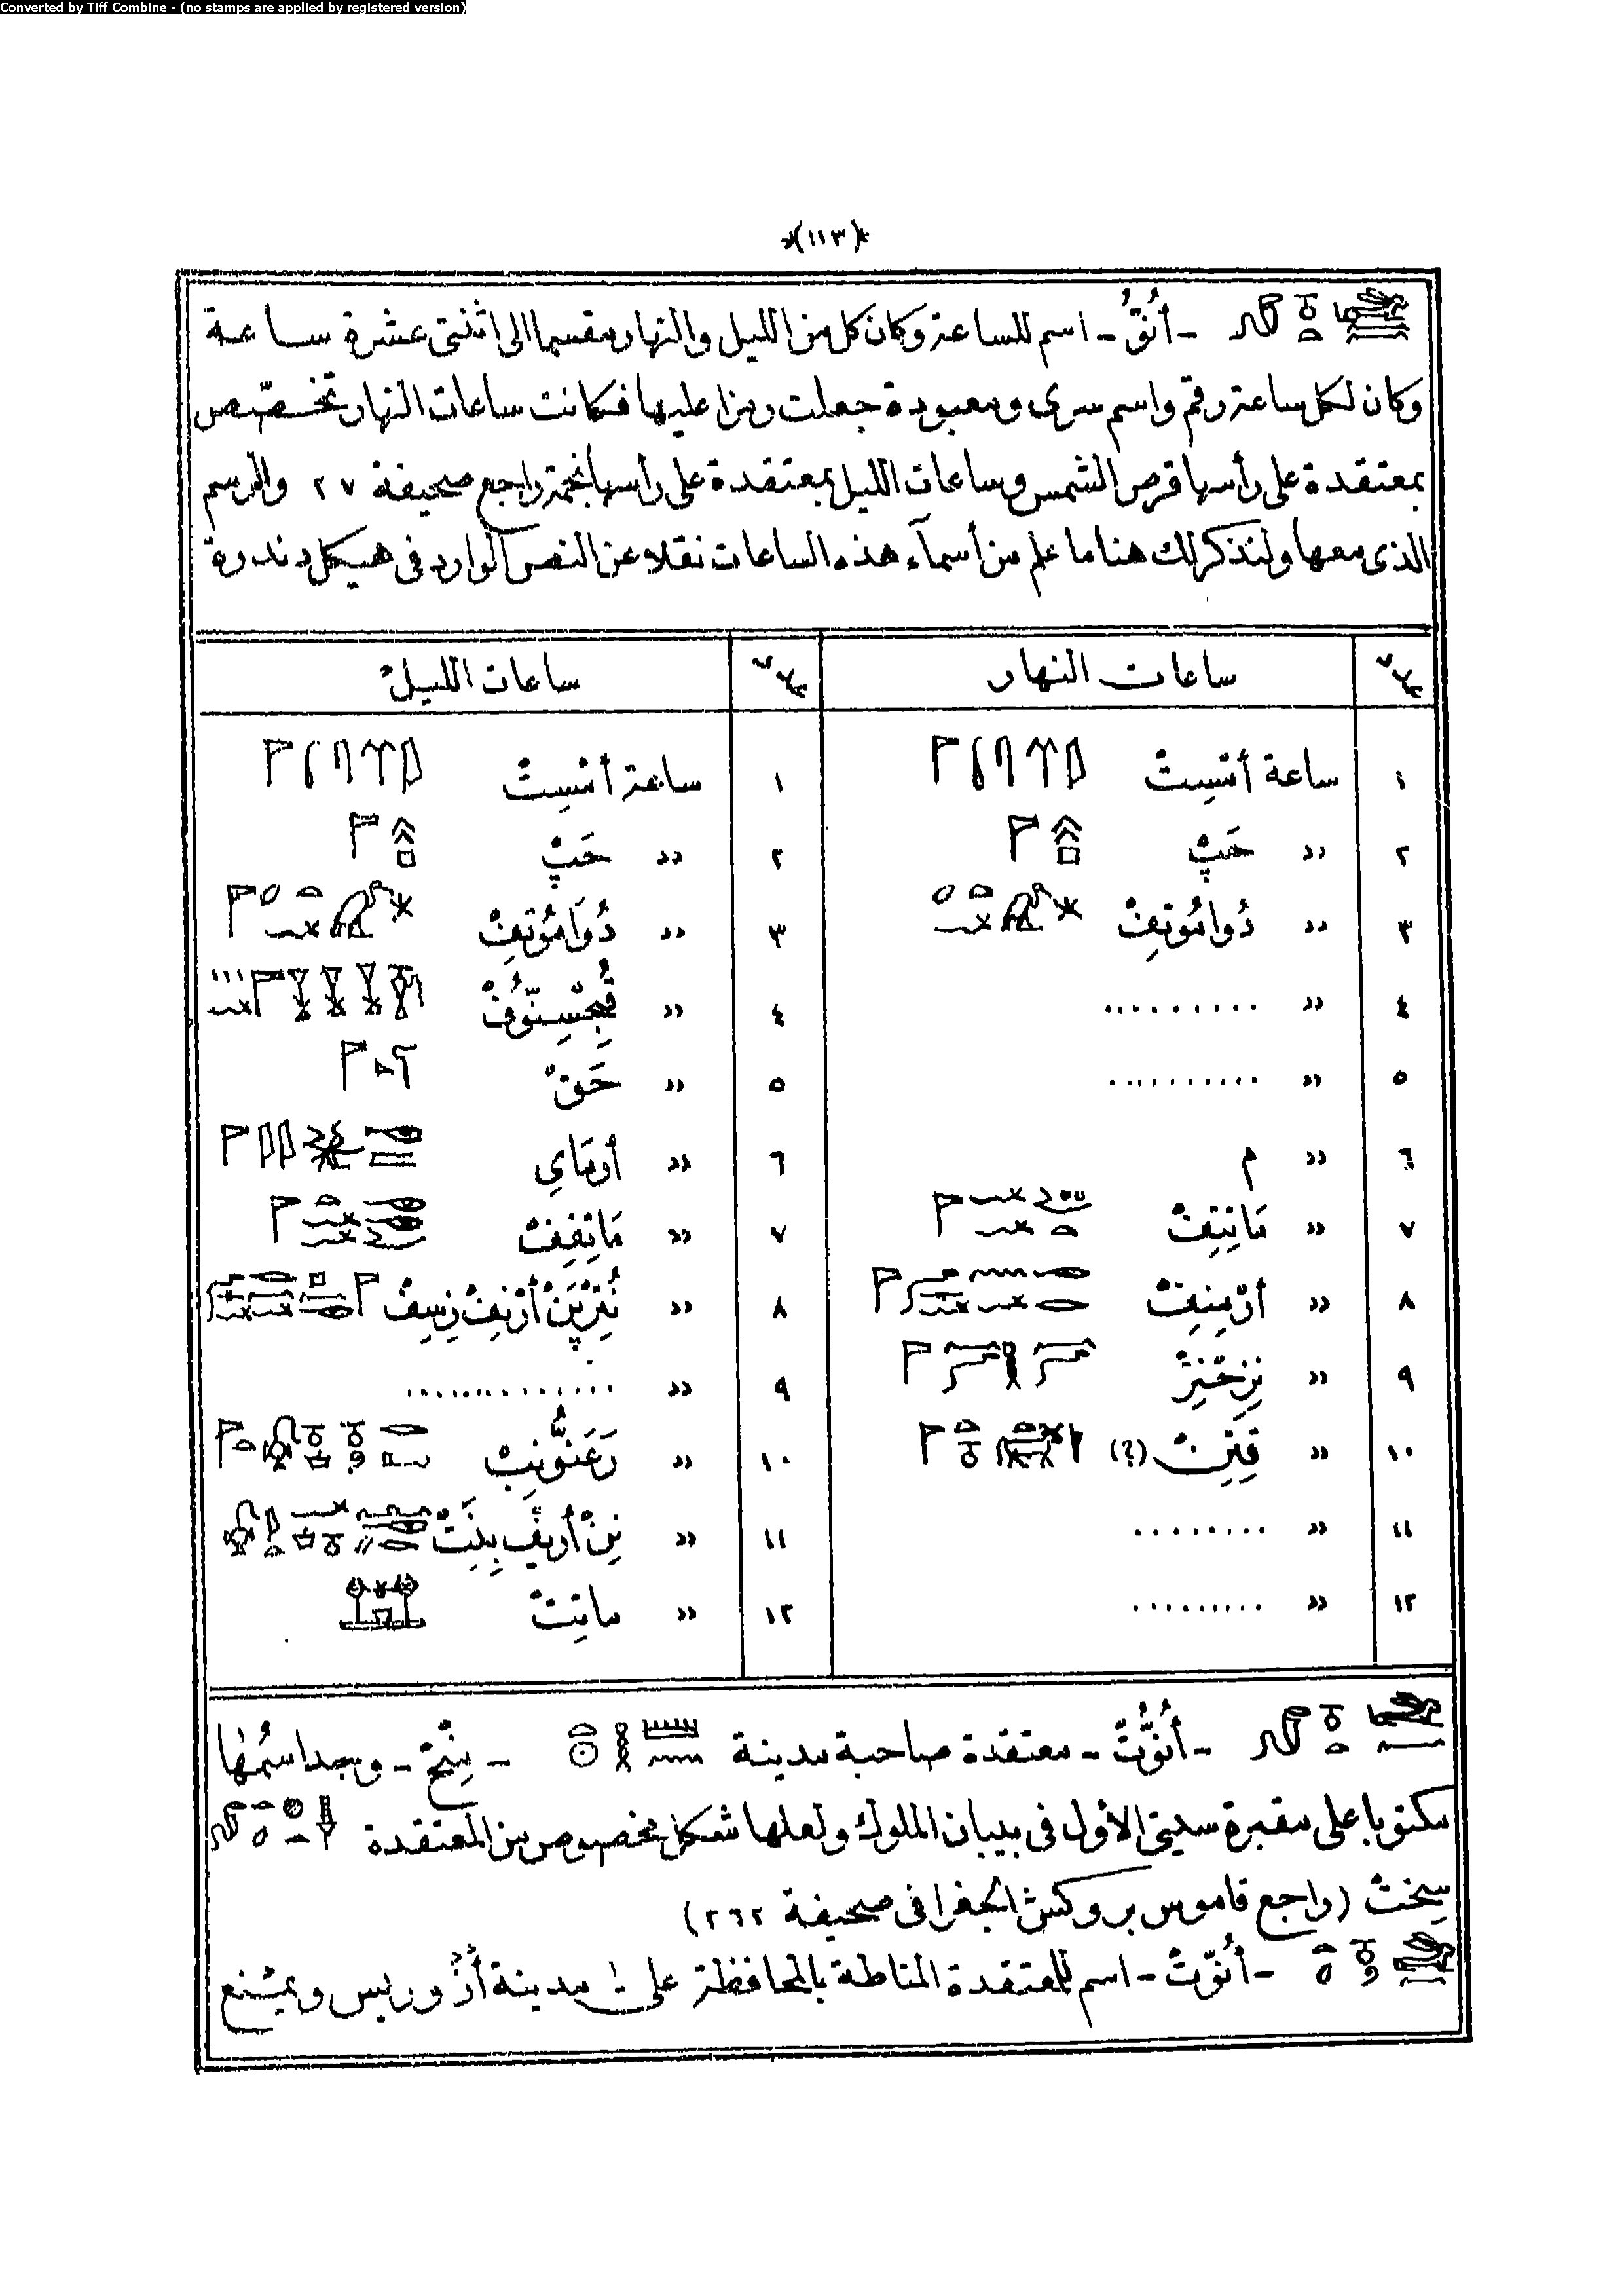 Converted by Tiff Combine - (no stamps are applied by registered version)
*(١١٣)*
- أُنُتُ - اسم للساعة وكان كل من الليل والنهار مقسما الى اثنتى عشرة ساعة
وكان لكل ساعة رقم واسم سرى ومعبودة جعلت رمزا عليها فكانت ساعات النهار تخصّص
بمعتقدة على رأسها قرص الشمس وساعات الليل بمعتقدة على رأسها نجمة راجع صحيفة ٢٧ والرسم
الذى معها ولنذكر لك هنا ما علم من أسمآء هذه الساعات نقلا عن النص الوارد فى هيكل دندرة
نمرة ساعات النهار نمرة ساعات الليل
١ ساعة أَمْسِتْ ١ ساعة أَمْسِتْ
٢ » حَپْ ٢ » حَپْ
٣ » دُوامُوتِفْ ٣ » دُوَامُوتِفْ
٤ » .......... ٤ »
٥ » .......... ٥ » حَقْ
٦ » م ٦ » أرمَاىِ
٧ » مَانِتِفْ ٧ » مَاتِفِفْ
٨ » أرْمِنِفْ ٨ » نُتِرْپَنْ أرْنِفْ زِسِفْ
٩ » نِزحْنِزْ ٩ » ..............
١٠ » (؟) ١٠ »
١١ » ......... ١١ »
١٢ » ......... ١٢ » مانِتْ
- أُنُوُّتْ - معتقدة صاحبة مدينة - مِنْحْ - وجد اسمُها
مكتوبا على مقبرة سيتى الأول فى بيبان الملوك ولعلها شكل مخصوص من المعتقدة
سِخِتْ (راجع قاموس بروكش الجغرافى صحيفة ٣٦٢)
- أُنُوّتْ - اسم للمعتقدة المناطة بالمحافظة على مدينة أُزُوريس ويمنع